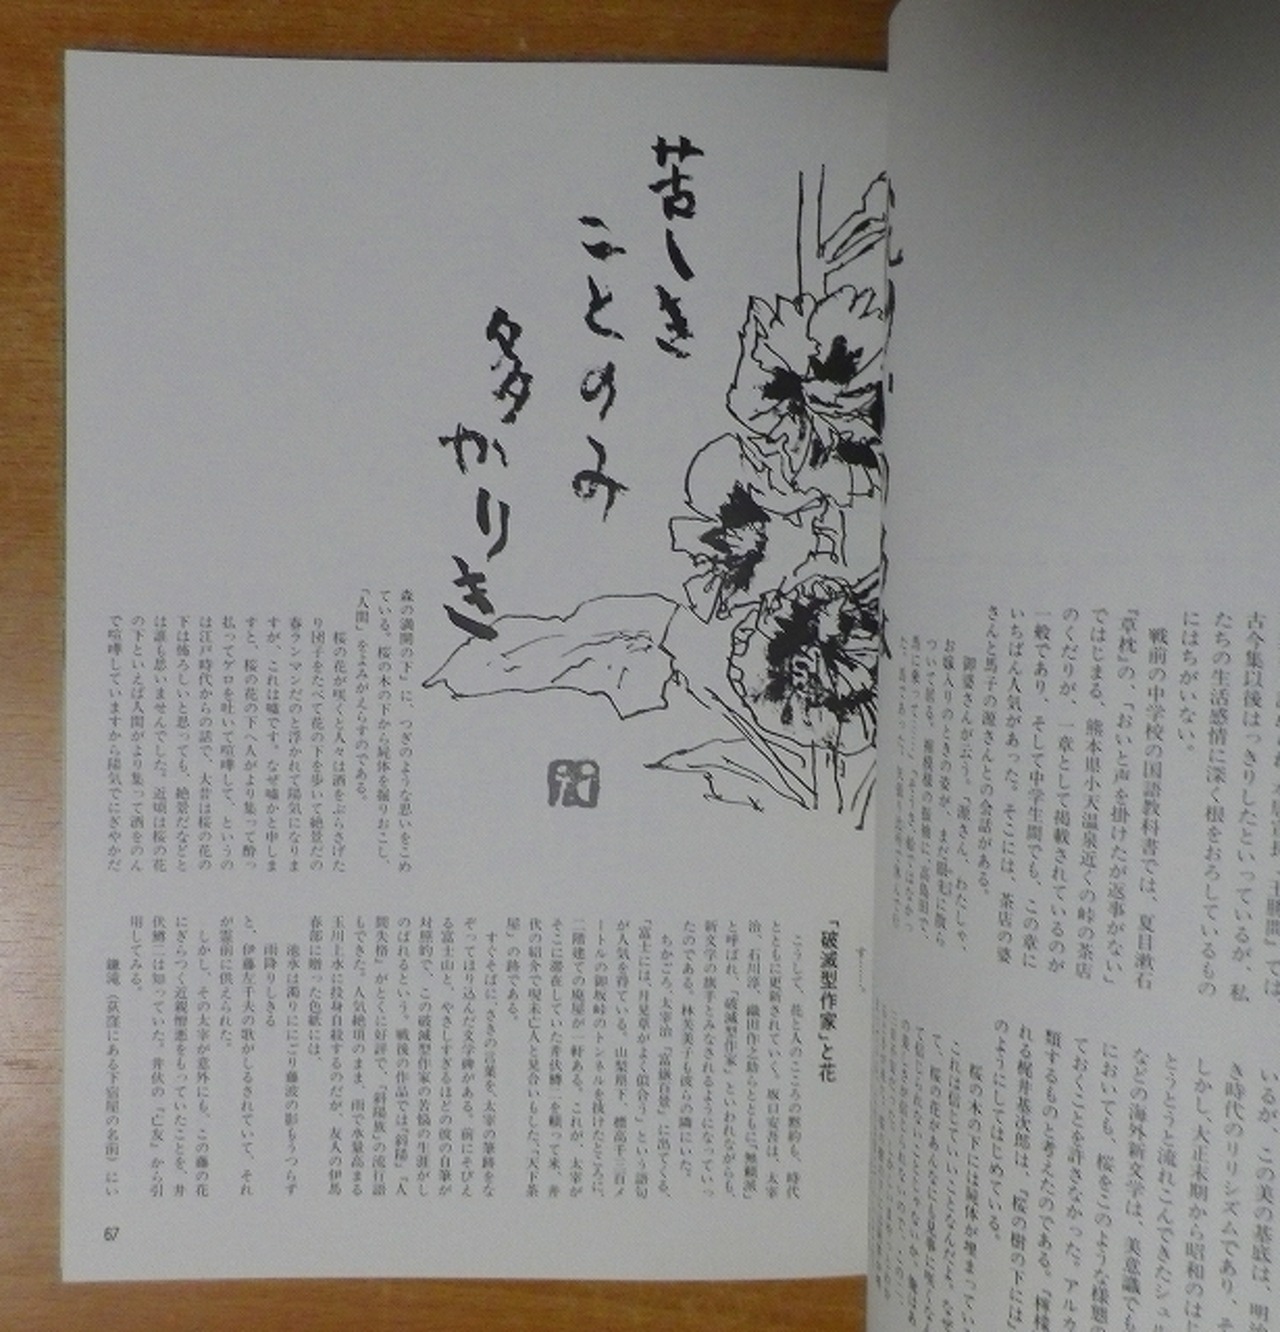 古今集以後はっきりしたといっているが、私
たちの生活感情に深く根をおろしているもの
にはちがいない。
戦前の中学校の国語教科書では、夏目漱石
『草枕』の、「おいと声を掛けたが返事がない」
ではじまる、熊本県小天温泉近くの峠の茶店
のくだりが、一章として掲載されているのが
一般であり、そして中学生間でも、この章に
いちばん人気があった。そこには、茶店の婆
さんと馬子の源さんとの会話がある。
御婆さんが云う。「源さん、わたしゃ、
お嫁入りのときの姿が、まだ眼前に散ら
ついて居る。裾模様の振袖に、高島田で、
馬に乗って……」
いるが、この美の基底は、明治
き時代のリリシズムであり、そ
しかし、大正末期から昭和のはじ
とうとうと流れこんできたシュル
などの海外新文学は、美意識でも
においても、桜をこのような様態の
ておくことを許さなかった。アルカ
類するものと考えたのである。『檸檬
れる梶井基次郎は、『桜の樹の下には』
のようにしてはじめている。
桜の木の下には屍体が埋まってい
これは信じていいことなんだよ。な
て、桜の花があんなにも見事に咲く
苦しき
ことのみ
多かりき
森の満開の下」に、つぎのような思いをこめ
ている。桜の木の下から屍体を掘りおこし、
「人間」をよみがえらすのである。
桜の花が咲くと人々は酒をぶらさげた
り団子をたべて花の下を歩いて絶景だの
春ランマンだのと浮かれて陽気になりま
すが、これは嘘です。なぜ嘘かと申しま
すと、桜の花の下へ人がより集って酔っ
払ってゲロを吐いて喧嘩して、というの
は江戸時代からの話で、大昔は桜の花の
下は怖ろしいと思っても、絶景だなどと
は誰も思いませんでした。近頃は桜の花
の下といえば人間がより集って酒をのん
で喧嘩していますから陽気でにぎやかだ
「破滅型作家」と花
こうして、花と人のこころの黙約も、時代
とともに更新されていく。坂口安吾は、太宰
治、石川淳、織田作之助らとともに、「無頼派」
と呼ばれ、「破滅型作家」といわれながらも、
新文学の旗手とみなされるようになっていっ
たのである。林芙美子も彼らの隣にいた。
ちかごろ、太宰治『富嶽百景』に出てくる、
「富士には、月見草がよく似合う」という語句
が人気を得ている。山梨県下、標高千三百メ
ートルの御坂峠のトンネルを抜けたところに、
二階建ての廃屋が一軒ある。これが、太宰が
そこに滞在していた井伏鱒二を頼って来、井
伏の紹介で現未亡人と見合いもした、「天下茶
屋」の跡である。
すぐそばに、さきの言葉を、太宰の筆跡をな
ぞってほり込んだ文学碑がある。前にそびえ
る富士山と、やさしすぎるほどの彼の自筆が
対照的で、この破滅型作家の苦悩の生涯がし
のばれるという。戦後の作品では『斜陽』『人
間失格』がとくに好評で、「斜陽族」の流行語
もできた。人気絶頂のまま、雨で水量高まる
玉川上水に投身自殺するのだが、友人の伊馬
春部に贈った色紙には、
池水は濁りににごり藤波の影もうつらず
雨降りしきる
と、伊藤左千夫の歌がしるされていて、それ
が霊前に供えられた。
しかし、その太宰が意外にも、この藤の花
にざらつく近親憎悪をもっていたことを、井
伏鱒二は知っていた。井伏の『亡友』から引
用してみる。
鎌滝（荻窪にある下宿屋の名前）にい
67